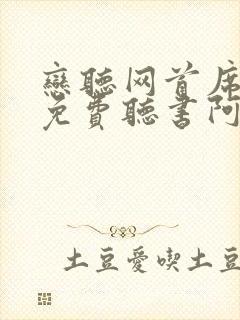 戀聽网首席
免費聽書阿
土豆愛喫土豆